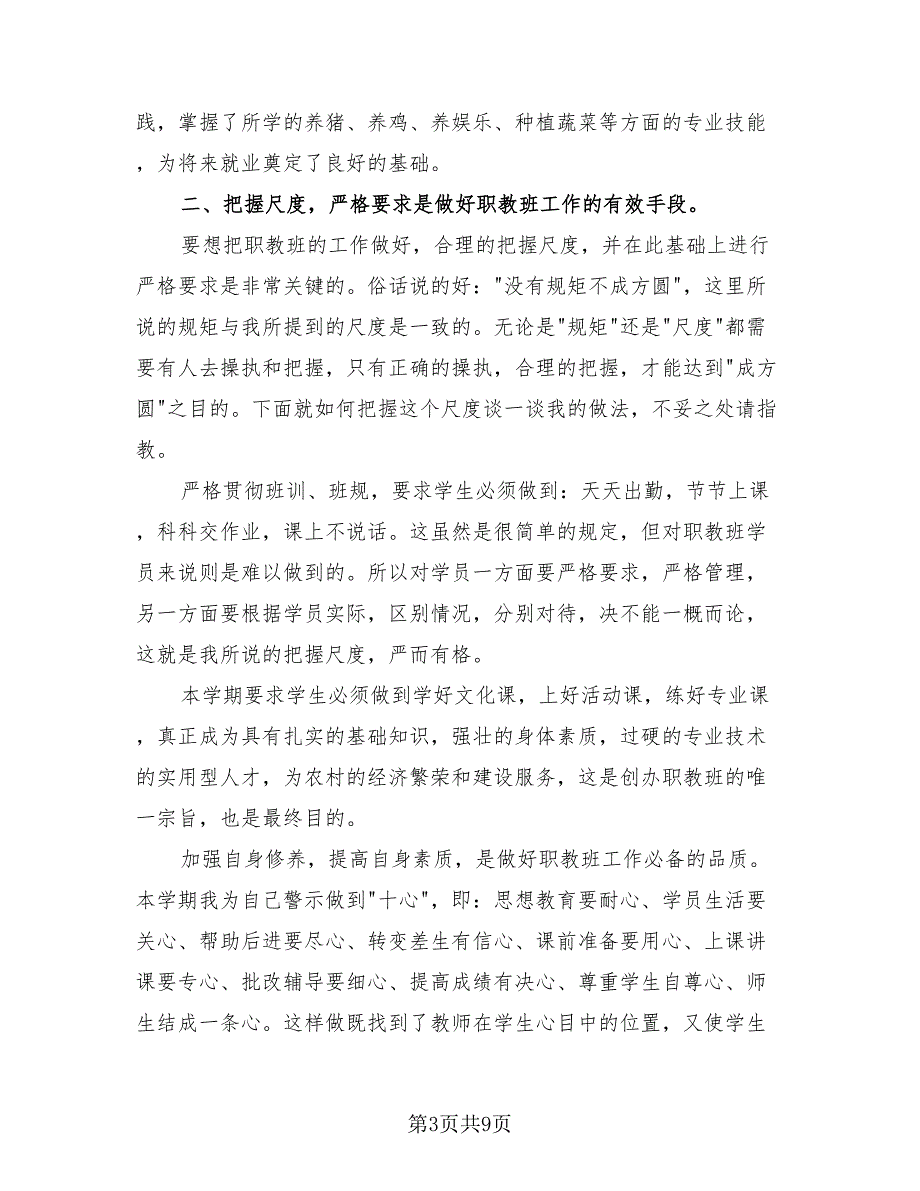 践，掌握了所学的养猪、养鸡、养娱乐、种植蔬菜等方面的专业技能
，为将来就业奠定了良好的基础。
二、把握尺度，严格要求是做好职教班工作的有效手段。
要想把职教班的工作做好，合理的把握尺度，并在此基础上进行
严格要求是非常关键的。俗话说的好："没有规矩不成方圆"，这里所
说的规矩与我所提到的尺度是一致的。无论是"规矩"还是"尺度"都需
要有人去操执和把握，只有正确的操执，合理的把握，才能达到"成方
圆"之目的。下面就如何把握这个尺度谈一谈我的做法，不妥之处请指
教。
严格贯彻班训、班规，要求学生必须做到：天天出勤，节节上课
，科科交作业，课上不说话。这虽然是很简单的规定，但对职教班学
员来说则是难以做到的。所以对学员一方面要严格要求，严格管理，
另一方面要根据学员实际，区别情况，分别对待，决不能一概而论，
这就是我所说的把握尺度，严而有格。
本学期要求学生必须做到学好文化课，上好活动课，练好专业课
，真正成为具有扎实的基础知识，强壮的身体素质，过硬的专业技术
的实用型人才，为农村的经济繁荣和建设服务，这是创办职教班的唯
一宗旨，也是最终目的。
加强自身修养，提高自身素质，是做好职教班工作必备的品质。
本学期我为自己警示做到"十心"，即：思想教育要耐心、学员生活要
关心、帮助后进要尽心、转变差生有信心、课前准备要用心、上课讲
课要专心、批改辅导要细心、提高成绩有决心、尊重学生自尊心、师
生结成一条心。这样做既找到了教师在学生心目中的位置，又使学生
第3页共9页